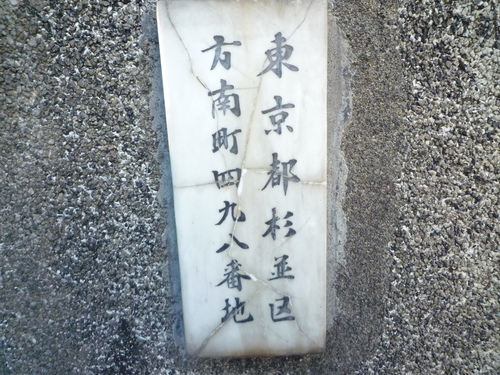 東京都杉並区
方南町四九八番地